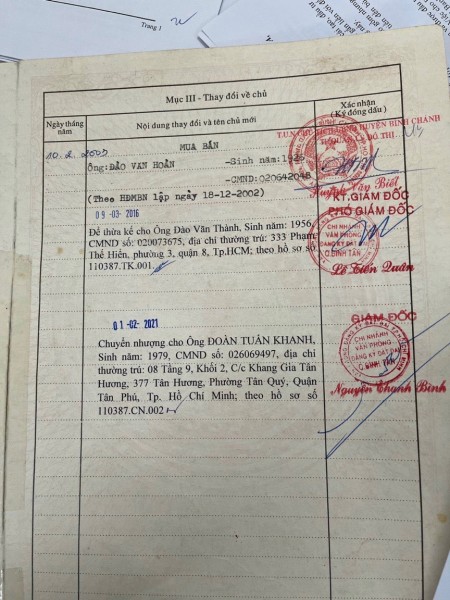 Trang 1
Mục III - Thay đổi về chủ
Ngày tháng năm
Nội dung thay đổi và tên chủ mới
Xác nhận
(Ký đóng dấu)
10.2.2003
MUA BÁN
Ông: ĐÀO VĂN HOÀN -Sinh năm:1925
-CMND:020642048
(Theo HĐMBN lập ngày 18-12-2002)
HUYỆN BÌNH CHÁNH
Huỳnh Văn Biết
09-03-2016
Để thừa kế cho Ông Đào Văn Thành, Sinh năm: 1956,
CMND số: 020073675, địa chỉ thường trú: 333 Phạm
Thế Hiển, phường 3, quận 8, Tp.HCM; theo hồ sơ số
110387.TK.001.
KT.GIÁM ĐỐC
PHÓ GIÁM ĐỐC
CHI NHÁNH
VĂN PHÒNG
ĐĂNG KÝ ĐẤT ĐAI
Q.BÌNH TÂN
Lê Tiến Quân
01-02-2021
Chuyển nhượng cho Ông ĐOÀN TUẤN KHANH,
Sinh năm: 1979, CMND số: 026069497, địa chỉ
thường trú: 08 Tầng 9, Khối 2, C/c Khang Gia Tân
Hương, 377 Tân Hương, Phường Tân Quý, Quận
Tân Phú, Tp. Hồ Chí Minh; theo hồ sơ số
110387.CN.002
GIÁM ĐỐC
CHI NHÁNH
VĂN PHÒNG
ĐĂNG KÝ ĐẤT ĐAI
Q.BÌNH TÂN
Nguyễn Thanh Bình